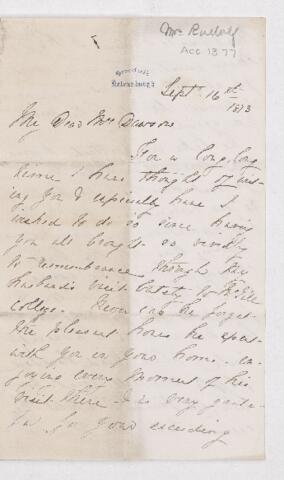 Mrs Rudolf
ACC 1377
Sept. 16th
1873
My Dear Mrs Dawson
For a long, long
time I have thought of writ-
ing you & especially have I
wished to do so since having
you all brought so vividly
to remembrance through my
husband's visit lately to McGill
College. Never can he forget
the pleasant hours he spent
with you in your home. en-
joying every moment of his
visit there & is very grate-
ful for your exceeding